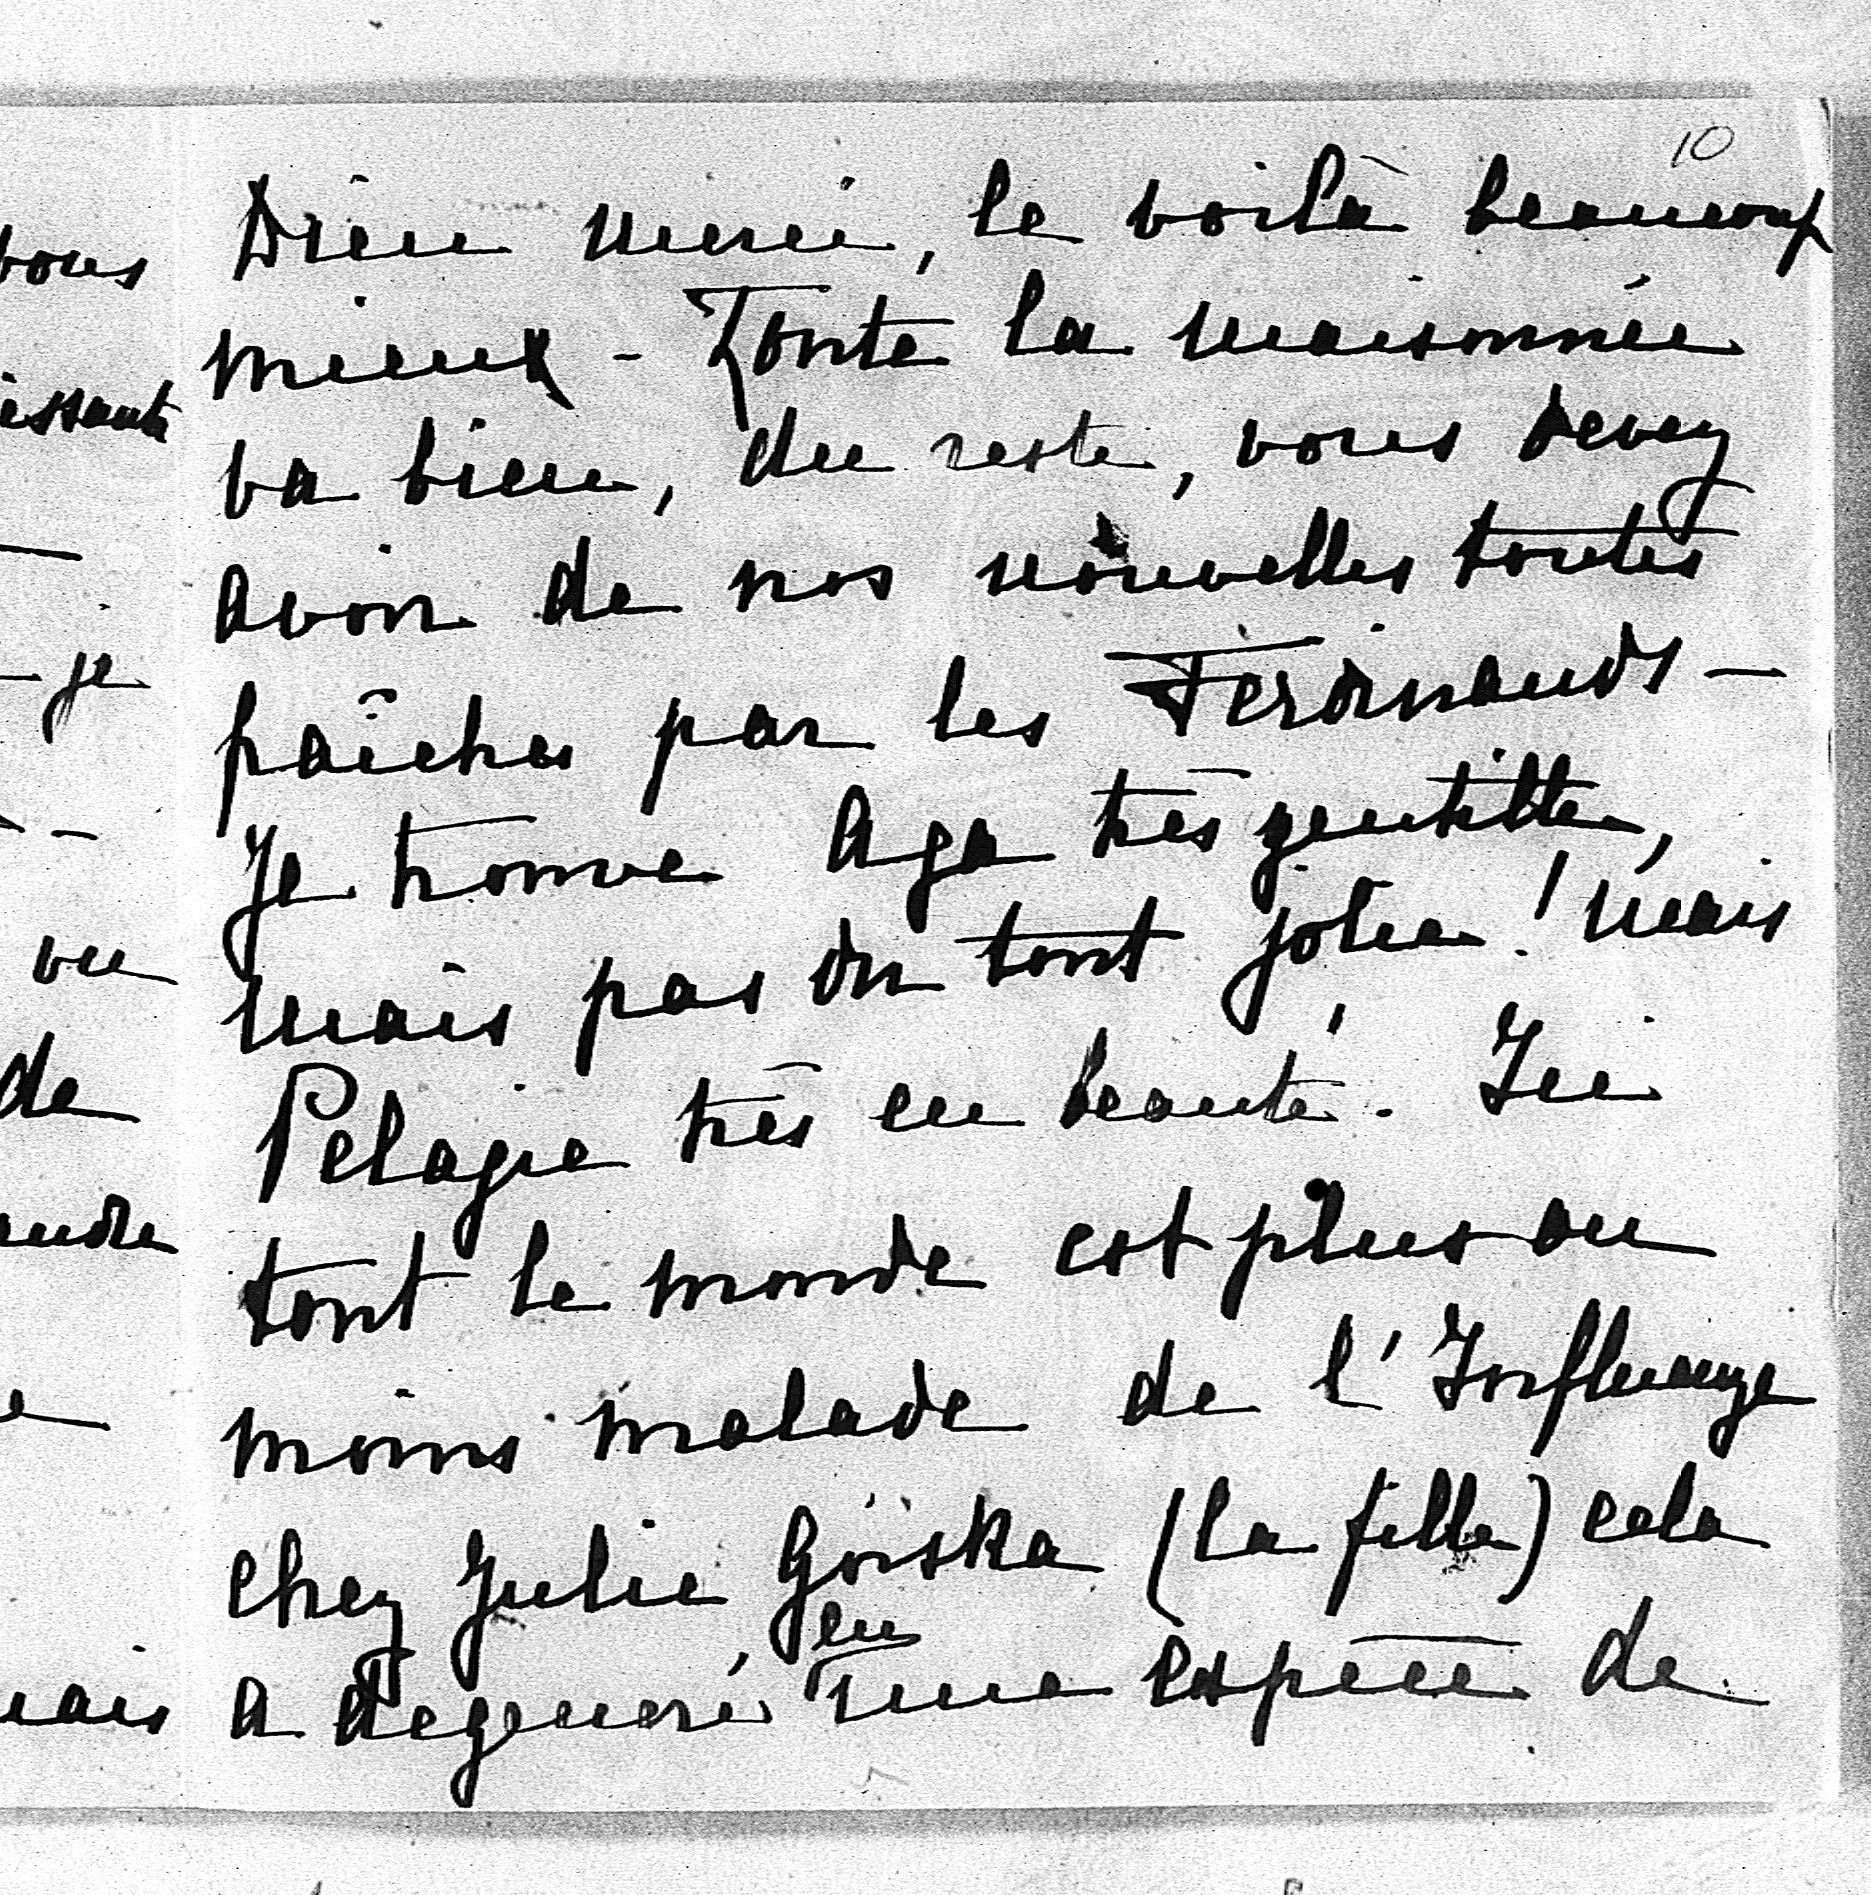 10
Dieu merci, le voilà beaucoup
mieux - Toute la maisonnée
va bien, du reste, vous devez
avoir de nos nouvelles toutes
fraîches par les Ferdinands -
Je trouve Aga très gentille,
mais pas du tout jolie! mais
Pelagie très en beauté. Ici
tout le monde est plus ou
moins malade de l'Influenze
chez Julie Górska (la fille) cela
a dégeneré en une espèce de
vous
je
vu
de